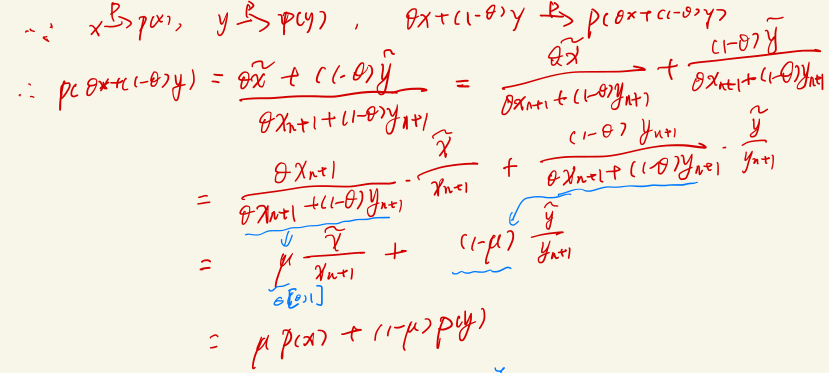 ∵ x →ᴾ p(x), y →ᴾ p(y), θx+(1-θ)y →ᴾ p(θx+(1-θ)y)
∴ p(θx+(1-θ)y) = \frac{θ\tilde{x} + (1-θ)\tilde{y}}{θx_{n+1}+(1-θ)y_{n+1}} = \frac{θ\tilde{x}}{θx_{n+1}+(1-θ)y_{n+1}} + \frac{(1-θ)\tilde{y}}{θx_{n+1}+(1-θ)y_{n+1}}
= \frac{θx_{n+1}}{θx_{n+1}+(1-θ)y_{n+1}} · \frac{\tilde{x}}{x_{n+1}} + \frac{(1-θ)y_{n+1}}{θx_{n+1}+(1-θ)y_{n+1}} · \frac{\tilde{y}}{y_{n+1}}
= μ \frac{\tilde{x}}{x_{n+1}} + (1-μ) \frac{\tilde{y}}{y_{n+1}}
∈[0,1]
= μ p(x) + (1-μ) p(y)